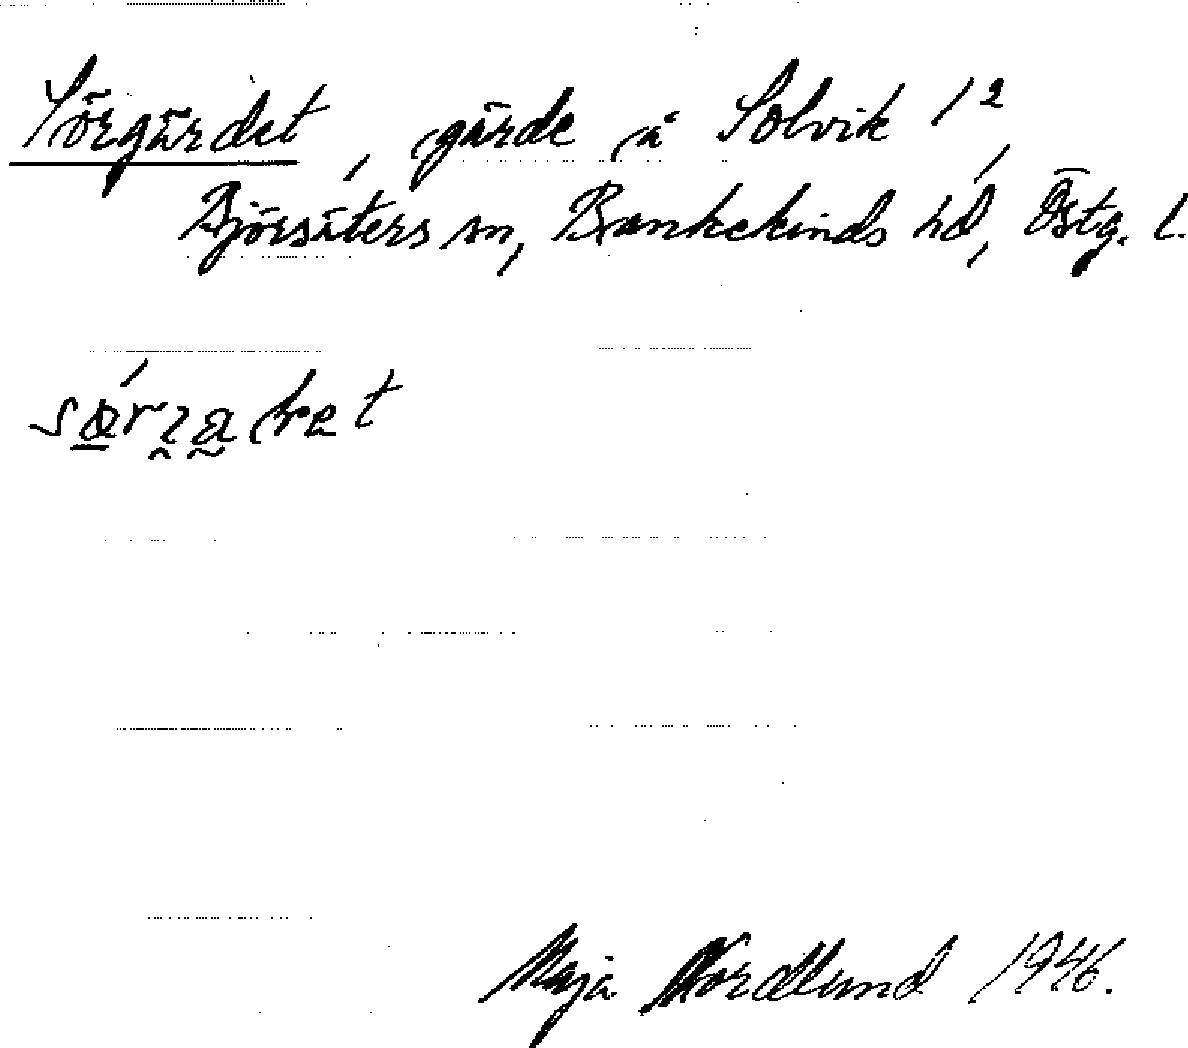 Sörgärdet, gärde å Solvik 1²,
Björsäters sn, Bankekinds hd, Östg. l.
Maja Nordlund 1946.